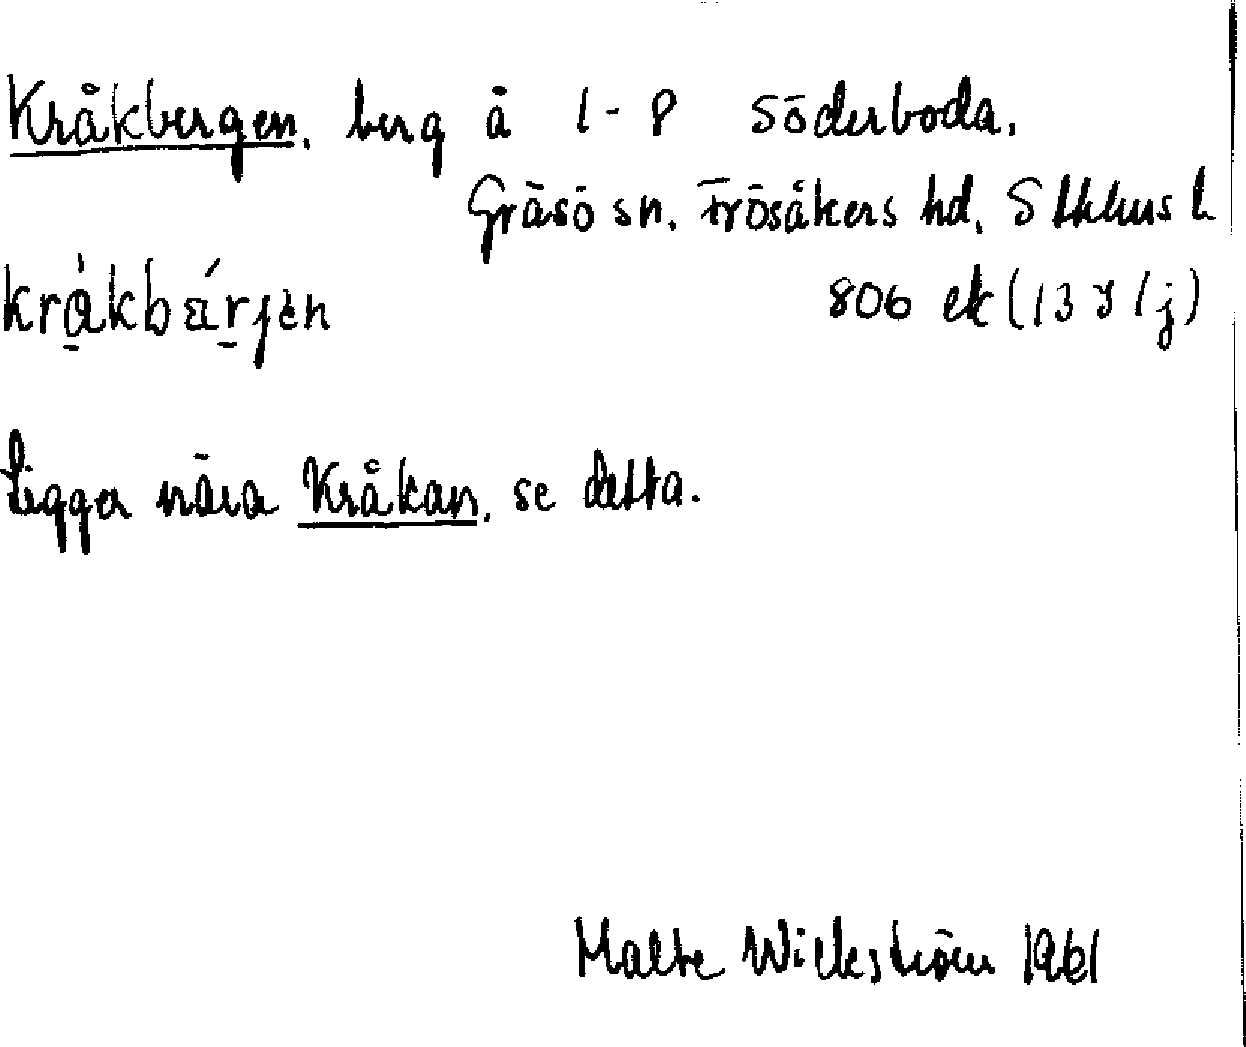 Kråkbergen, berg å 1-8 Söderboda,
Gräsö sn. Frösåkers hd, Sthlms l
806 ek (13 I 1 j)
Ligger nära Kråkan, se detta.
Malte Wickström 1961